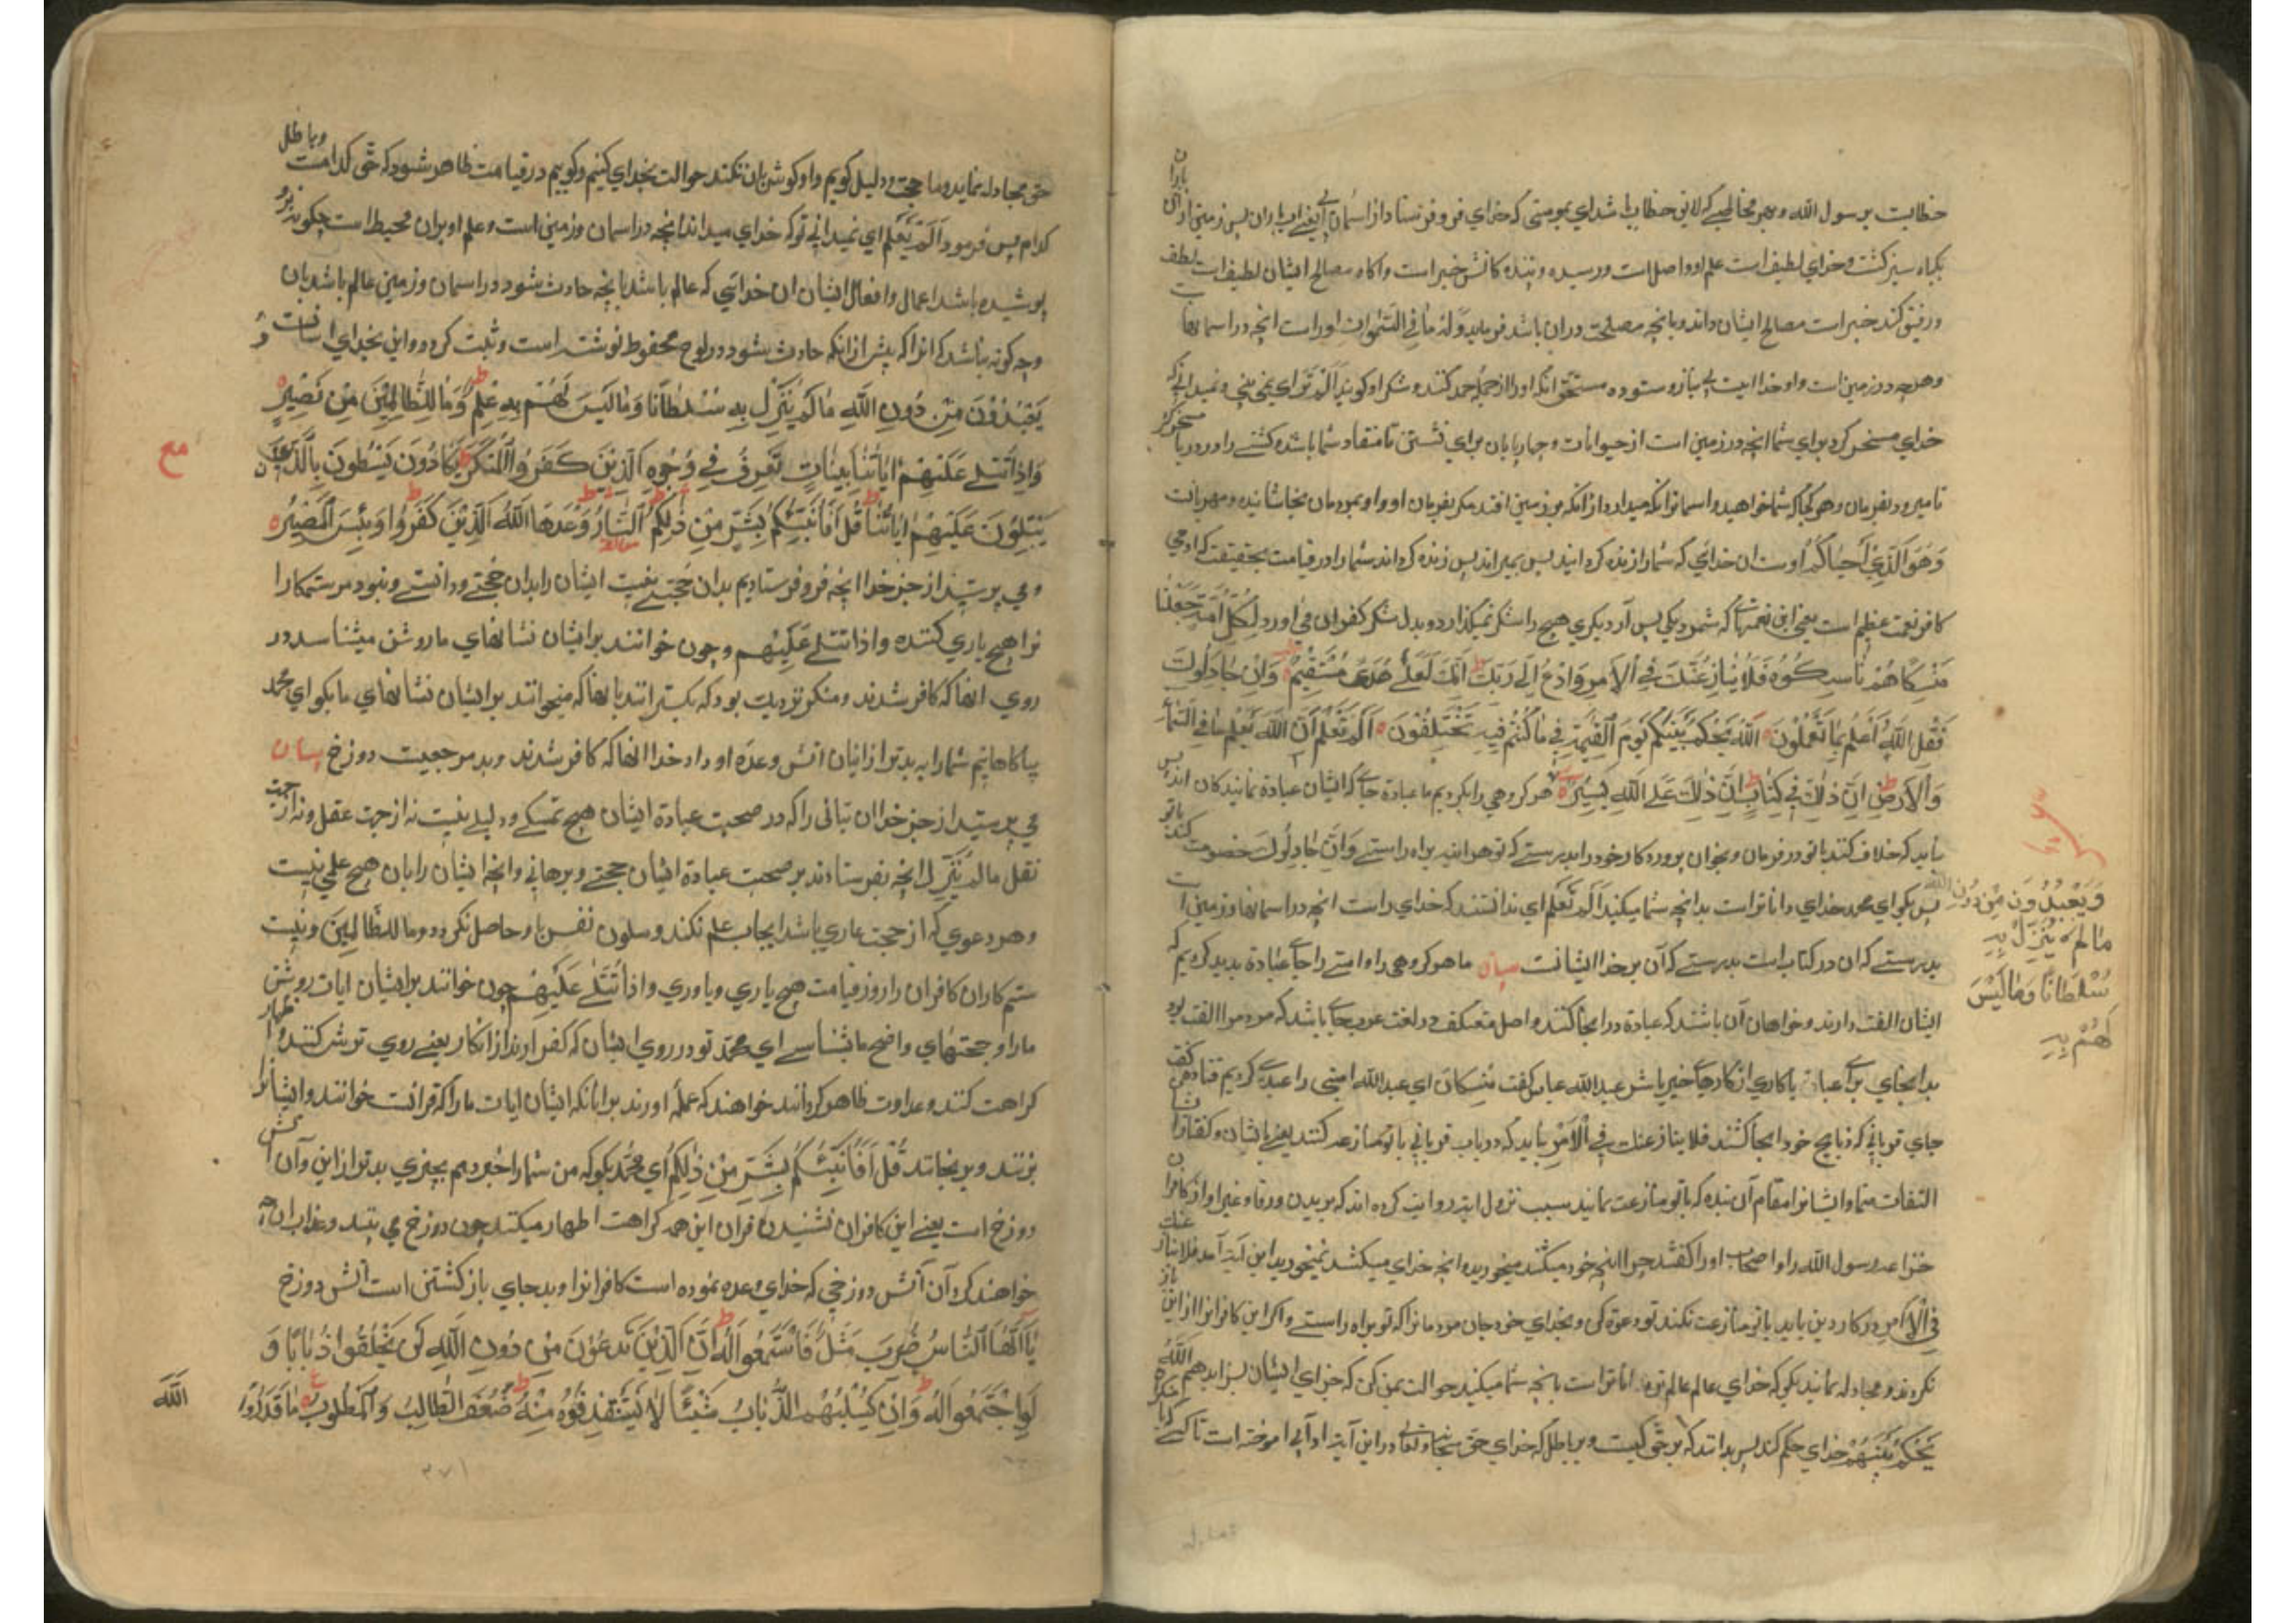 خطابست بر رسول الله و هر مخاطبی که لایق خطاب باشد ای نمی بینی که خدای فرو فرستاد از آسمان آبی یعنی باران پس زمین از آن باران
بکیاه سبز کشت و خدای لطیف است علم او واصل است و رسیده و ببنده کانش خبیر است و آکاه بمصالح ایشان لطیف است لطف
و رفق کند خبیر است مصالح ایشان داند و بانچه مصلحت در آن باشد فرماید وَلَهُ مَا فِي السَّمٰوَاتِ اوراست انچه در آسمانها
و هرچه در زمین است و او خداایست بی نیاز و ستوده مستحق انکه اورا حمد کنند و شکر او کویند اَلَمْ تَرَ ای نمی بینی و نمیدانی که
خدای مسخر کرد برای شما انچه در زمین است از حیوانات و چهارپایان برای نشستن تا منقاد شما باشد و کشتی را در دریا مسخر کرد
تا میرود بفرمان و هر کجا که شما خواهید و آسمانرا نکه میدارد از انکه بر زمین افتد مکر بفرمان او و او بمردمان بخشاینده و مهربانست
وَهُوَ الَّذِي أَحْيَاكُمْ اوست آن خدائی که شمارا زنده کردانید پس بمیراند پس زنده کرداند شمارا در قیامت بحقیقت که آدمی
کافر نعمت عظیم است یعنی این نعمتها که شمرد یکی پس از دیکری هیچ را شکر نمیکذارد و بدل شکر کفران می آورد لِكُلِّ أُمَّةٍ جَعَلْنَا
مَنْسَكًا هُمْ نَاسِكُوهُ فَلَا يُنَازِعُنَّكَ فِي الْأَمْرِ وَادْعُ إِلَى رَبِّكَ إِنَّكَ لَعَلَى هُدًى مُسْتَقِيمٍ وَإِنْ جَادَلُوكَ
فَقُلِ اللَّهُ أَعْلَمُ بِمَا تَعْمَلُونَ اللَّهُ يَحْكُمُ بَيْنَكُمْ يَوْمَ الْقِيٰمَةِ فِي مَا كُنْتُمْ فِيهِ تَخْتَلِفُونَ أَلَمْ تَعْلَمْ أَنَّ اللَّهَ يَعْلَمُ مَا فِي السَّمَاءِ
وَالْأَرْضِ إِنَّ ذٰلِكَ فِي كِتَابٍ إِنَّ ذٰلِكَ عَلَى اللَّهِ يَسِيرٌ هر کروهی را بکردیم ما عبادة جای که ایشان عبادة نمایندکان اند پس
نباید که خلاف کنند باتو در فرمان و بخوان پروردکار خود را بدرستی که تو هر آینه براه راستی وَإِنْ جَادَلُوكَ خصومت کنند باتو
پس بکو ای محمد خدای داناتر است بدانچه شما میکنید اَلَمْ تَعْلَمْ ای ندانستند که خدای راست انچه در آسمانها و زمین است
بدرستی که آن در کتاب است بدرستی که آن بر خدا آسانست بیان ما هر کروهی را و امتی را جای عبادة پدید کردیم که
ایشان الفت دارند و خواهان آن باشند که عبادة در انجا کنند و اصل منسک در لغت عرب جای باشد که مردم را الفت بود
بدانجای برای عبادت یا کاری از کارهای خیر یا شر عبدالله عباس کفت مَنْسَكًا ای عیدا لله امتی را عیدی کردیم قتاده کفت
جای قربانی که ذبایح خود انجا کشند فَلَا يُنَازِعُنَّكَ فِي الْأَمْرِ باید که در باب قربانی باتو منازعه کنند یعنی بایشان و کفتار
التفات منما و ایشانرا مقام آن نبده که باتو منازعت نمایند سبب نزول آیت روایت کرده اند که بدیل بن ورقا و غیر او از کافران
خزاعه رسول الله را و اصحاب اورا کفتند چرا آنچه خود میکشید میخورید و انچه خدای میکشد نمیخورید این آیت آمد فَلَا يُنَازِعُنَّكَ
فِي الْأَمْرِ در کار دین باید باتو منازعت نکنند تو دعوة کن و بخدای خود خوان مردمانرا که تو براه راستی و اکر این کافران از این باز
نکردند و مجادله نمایند بکو که خدای عالم داناتر است بانچه شما میکنید حوالت بمن کن که جزای ایشان بسزا بدهم الله
يَحْكُمُ بَيْنَهُمْ خدای حکم کند پس بدانند که بر حق کیست و بر باطل که خدای حق سبحانه و تعالی در این آیت ادبی آموخته است تا کسی که با
وَيَعْبُدُونَ مِنْ دُونِ اللَّهِ
مَا لَمْ يُنَزِّلْ بِهِ
سُلْطَانًا وَمَا لَيْسَ
لَهُمْ بِهِ
حق مجادله نماید و ما حجت و دلیل کویم و او کوش بآن نکند حوالت بخدای کنیم و کوییم در قیامت ظاهر شود که حق کدامست و باطل
کدام پس فرمود اَلَمْ تَعْلَمْ ای نمیدانی تو که خدای میداند انچه در آسمان و زمین است و علم او بران محیط است چکونه برو
پوشیده باشد اعمال و افعال ایشان آن خدائی که عالم باشد بانچه حادث شود در آسمان و زمین عالم باشد بان
و چه کونه نباشد که آنرا که پیش از انکه حادث شود در لوح محفوظ نوشته است و ثبت کرده و این بخدای آسانست وَ
يَعْبُدُونَ مِنْ دُونِ اللَّهِ مَا لَمْ يُنَزِّلْ بِهِ سُلْطَانًا وَمَا لَيْسَ لَهُمْ بِهِ عِلْمٌ وَمَا لِلظَّالِمِينَ مِنْ نَصِيرٍ
وَإِذَا تُتْلَى عَلَيْهِمْ اٰيَاتُنَا بَيِّنَاتٍ تَعْرِفُ فِي وُجُوهِ الَّذِينَ كَفَرُوا الْمُنْكَرَ يَكَادُونَ يَسْطُونَ بِالَّذِينَ
مع
يَتْلُونَ عَلَيْهِمْ اٰيَاتِنَا قُلْ أَفَأُنَبِّئُكُمْ بِشَرٍّ مِنْ ذٰلِكُمُ النَّارُ وَعَدَهَا اللَّهُ الَّذِينَ كَفَرُوا وَبِئْسَ الْمَصِيرُ
و می پرستید از جز خدا انچه فرو نفرستادیم بدان حجتی نیست ایشان را بدان حجتی و دانستی و نبود مر ستمکارا
نرا هیچ یاری کننده وَاذا تُتْلَى عَلَيْهِم و چون خوانند بر ایشان نشانهای ما روشن میشناسد در
روی آنها که کافر شدند و منکر نزدیک بود که بکیرانند بانها که میخوانند بر ایشان نشانهای ما بکو ای محمد
یا آکاهانیم شمارا به بدتر از ازیان آتش وعده او داد خدا آنها که کافر شدند و بد مرجعیست دوزخ بیان
می پرستید از جز خدا آن بتانی را که در صحت عبادة ایشان هیچ تمسکی و دلیلی نیست نه از جهت عقل و نه از جهت
نقل مَا لَمْ يُنَزِّلْ انچه نفرستادند بر صحت عبادة ایشان حجتی و برهانی و انچه ایشان را بان هیچ علمی نیست
و هر دعوی که از حجت عاری باشد ایجاب علم نکند و سکون نفس باو حاصل نکردد وَمَا لِلظَّالِمِينَ و نیست
ستم کاران کافران را روز قیامت هیچ یاری و یاوری وَاذا تُتْلَى عَلَيْهِمْ چون خوانند بر ایشان آیات روشن
مارا و حجتهای واضح ما بشناسی ای محمد تو در روی ایشان که کفر آورند از انکار یعنی روی ترش کنند و اظهار
کراهت کنند و عداوت ظاهر کردانند خواهند که حمله آورند بر آنانکه ایشان آیات مارا که قرآنست خوانند و ایشانرا
بزنند و برنجانند قُلْ أَفَأُنَبِّئُكُمْ بِشَرٍّ مِنْ ذٰلِكُمُ ای محمد بکو که من شمارا خبر دهم بچیزی بدتر از این و آن آتش
دوزخ است یعنی این کافران نشنیدن قرآن این همه کراهت اظهار میکنند چون دوزخ می بینند و عذاب آن چه
خواهند کرد آن آتش دوزخی که خدای وعده نموده است کافرانرا و بد جای باز کشتنی است آتش دوزخ
يَا أَيُّهَا النَّاسُ ضُرِبَ مَثَلٌ فَاسْتَمِعُوا لَهُ إِنَّ الَّذِينَ تَدْعُونَ مِنْ دُونِ اللَّهِ لَنْ يَخْلُقُوا ذُبَابًا وَ
لَوِ اجْتَمَعُوا لَهُ وَإِنْ يَسْلُبْهُمُ الذُّبَابُ شَيْئًا لَا يَسْتَنْقِذُوهُ مِنْهُ ضَعُفَ الطَّالِبُ وَالْمَطْلُوبُ مَا قَدَرُوا
اللَّهَ
۳۷۱